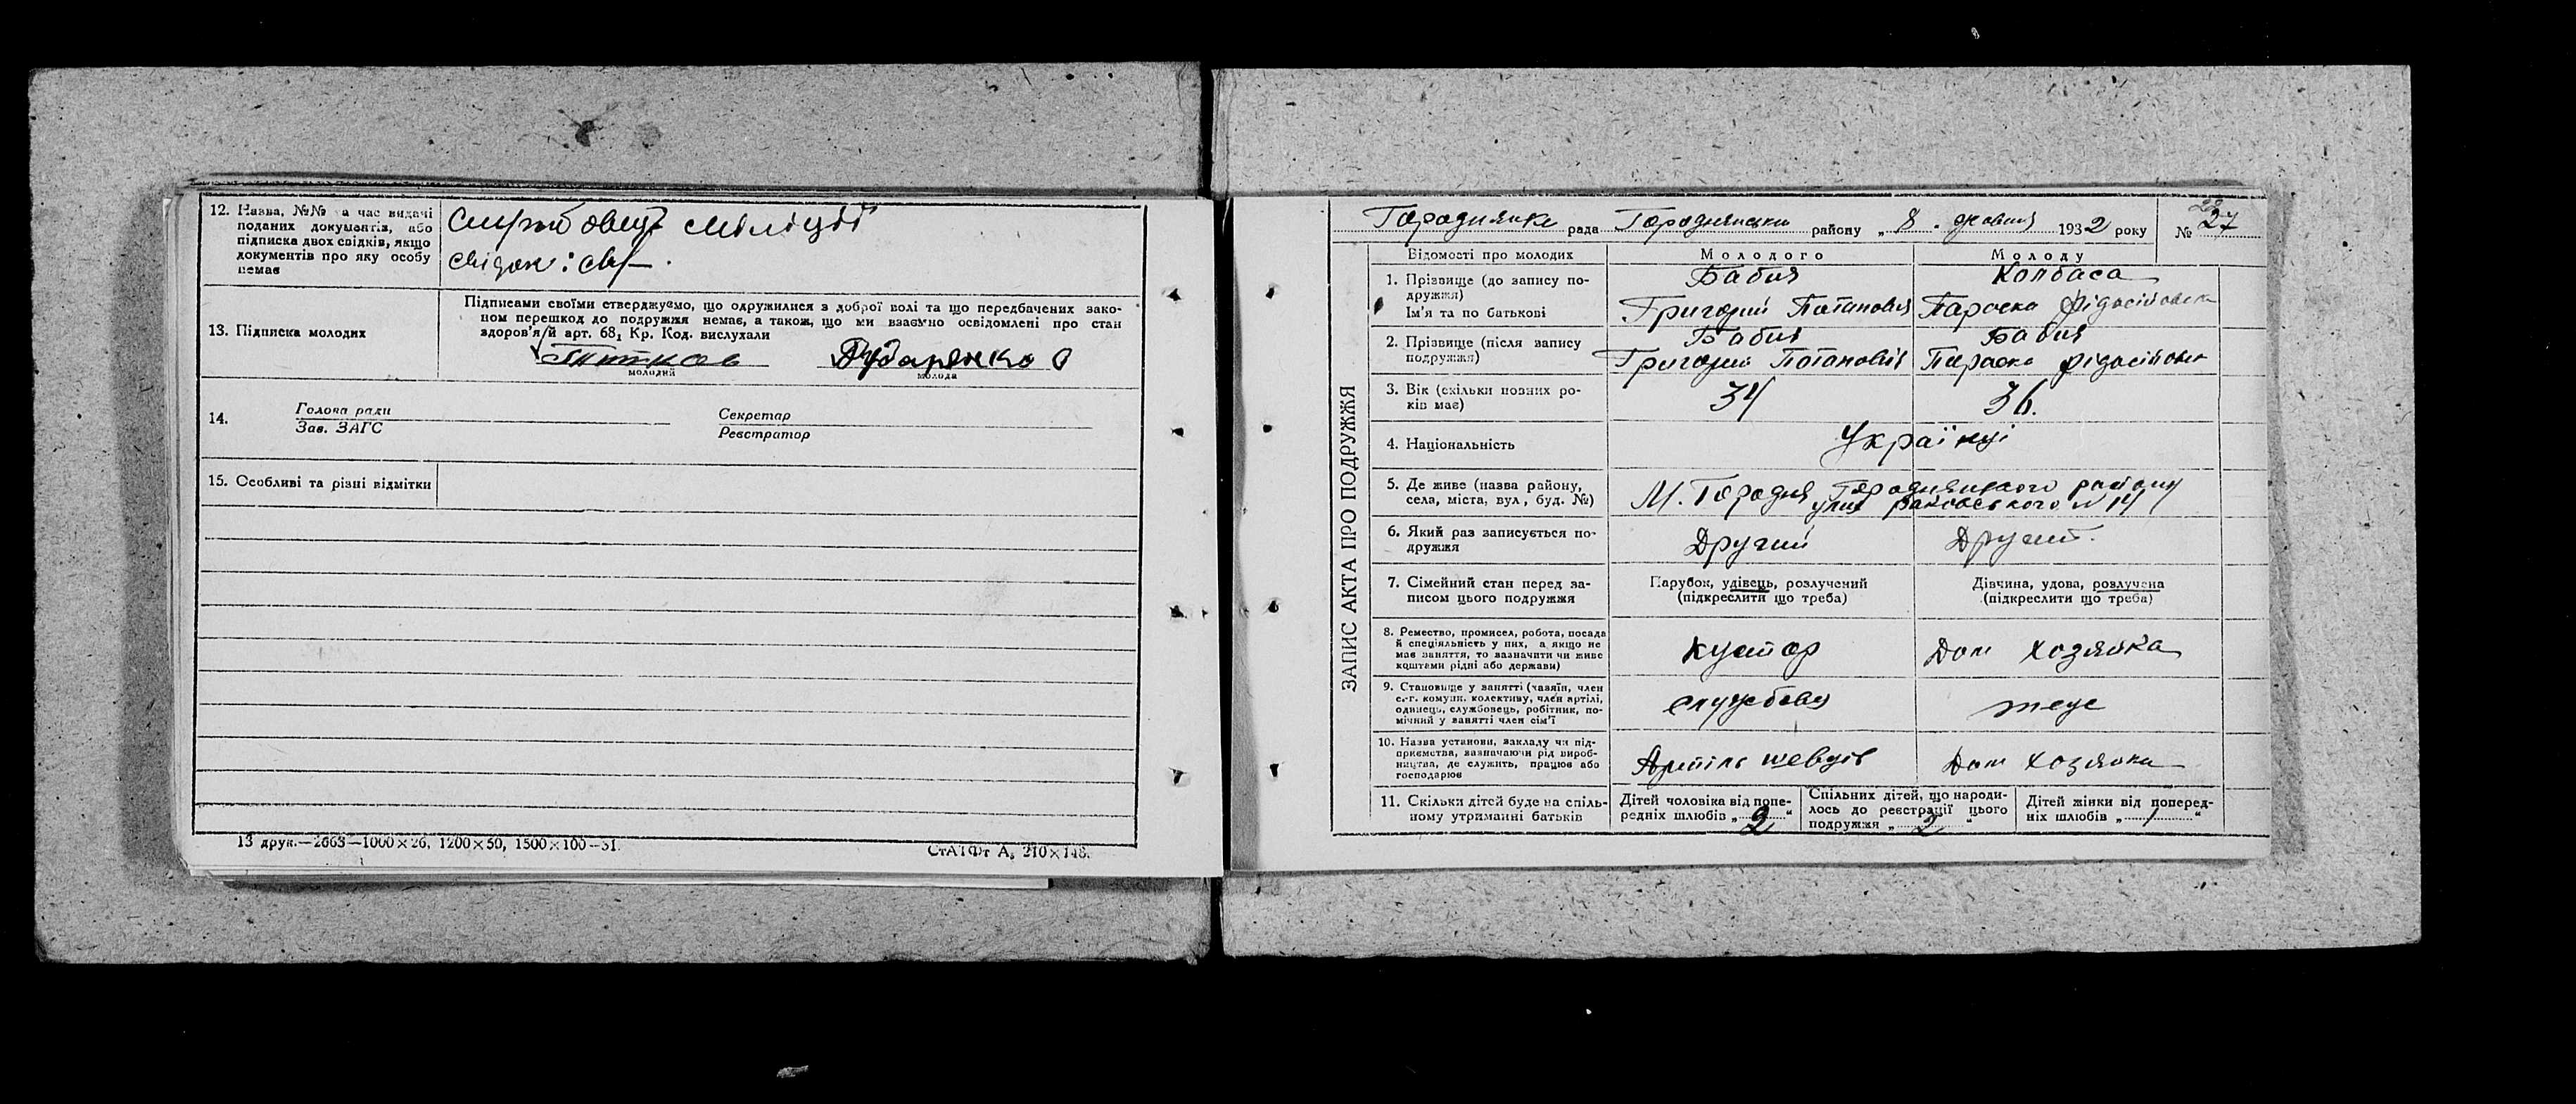 12. Назва, №№ та час видачі
поданих документів, або
підписка двох свідків, якщо
документів про яку особу
немає
службовець міліції
свідок:
13. Підписка молодих
Підписами своїми стверджуємо, що одружилися з доброї волі та що передбачених зако-
ном перешкод до подружжя немає, а також, що ми взаємно освідомлені про стан
здоров'я й арт. 68₁ Кр. Код. вислухали
Титков Дударенко
молодий молода
14.
Голова ради
Зав. ЗАГС
Секретар
Реєстратор
15. Особливі та різні відмітки
13 друк.—2663—1000×26, 1200×50, 1500×100—31.
СтАТФт А₅ 210×148.
ЗАПИС АКТА ПРО ПОДРУЖЖЯ
Городнянка рада Городнянськи району „ 8 „ жовтня 1932 року № 27
28
Відомості про молодих
Молодого
Молоду
1. Прізвище (до запису по-
дружжя)
Ім'я та по батькові
Бабич
Григорий Потапович
Колбаса
Параска
2. Прізвище (після запису
подружжя)
Бабич
Григорий Потапович
Бабич
Параска
3. Вік (скільки повних ро-
ків має)
34
36.
4. Національність
Українці
5. Де живе (назва району,
села, міста, вул, буд. №)
М. Городня Городнянського району
улиця Раковського N 14
6. Який раз записується по-
дружжя
Другий
Другий.
7. Сімейний стан перед за-
писом цього подружжя
Парубок, удівець, розлучений
(підкреслити що треба)
Дівчина, удова, розлучена
(підкреслити що треба)
8. Ремество, промисел, робота, посада
й спеціяльність у них, а якщо не
має заняття, то зазначити чи живе
коштами рідні або держави)
Кустар
Дом хозяйка
9. Становище у занятті (хазяїн, член
с.-г. комуни, колективу, член артілі,
одинець, службовець, робітник, по-
мічний у занятті член сім'ї
службовець
теж
10. Назва установи, закладу чи під-
приємства, зазначаючи рід вироб-
ництва, де служить, працює або
господарює
Артіль шевців
Дом хозяйка
11. Скільки дітей буде на спіль-
ному утриманні батьків
Дітей чоловіка від попе-
редніх шлюбів „ 2 “
Спільних дітей, що народи-
лось до реєстрації цього
подружжя „ 2 “
Дітей жінки від поперед-
ніх шлюбів „ / “